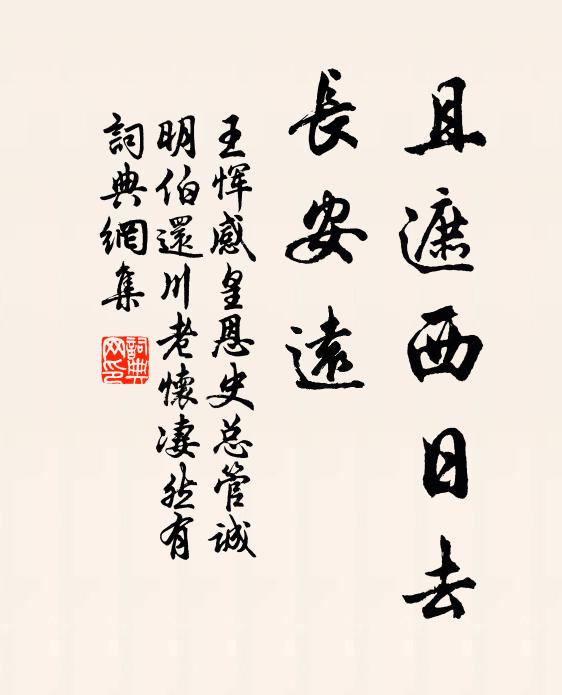 且遮西日去
長安遠
王惲感皇恩史总管誠
明伯還川老懷凄然有
詞典網集
詞典网印